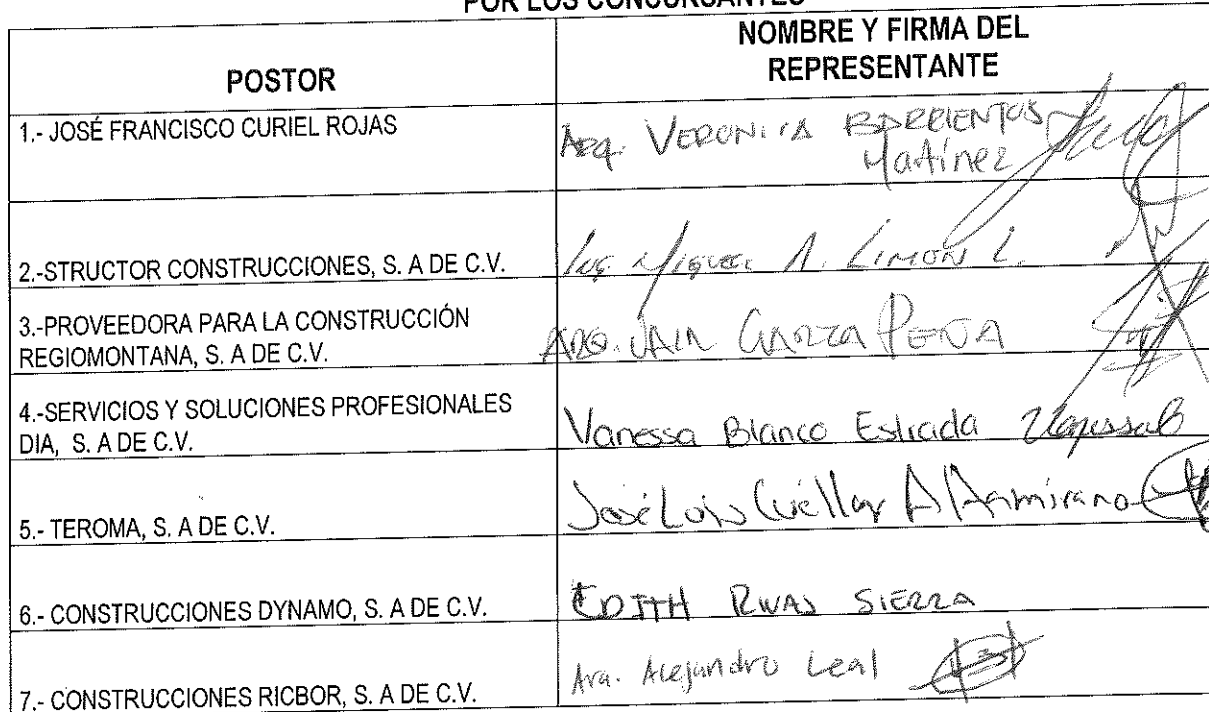 POR LOS CONCURSANTES
POSTOR
NOMBRE Y FIRMA DEL
REPRESENTANTE
1.- JOSÉ FRANCISCO CURIEL ROJAS
ARQ. VERONICA BARRIENTOS
Martínez
2.-STRUCTOR CONSTRUCCIONES, S. A DE C.V.
Miguel A. Limón L.
3.-PROVEEDORA PARA LA CONSTRUCCIÓN
REGIOMONTANA, S. A DE C.V.
ARQ. JAIR GARZA PEÑA
4.-SERVICIOS Y SOLUCIONES PROFESIONALES
DIA, S. A DE C.V.
Vanessa Blanco Estrada VanessaB
5.- TEROMA, S. A DE C.V.
José Luis Cuéllar Altamirano
6.- CONSTRUCCIONES DYNAMO, S. A DE C.V.
EDITH RIVAS SIERRA
7.- CONSTRUCCIONES RICBOR, S. A DE C.V.
Arq. Alejandro Leal